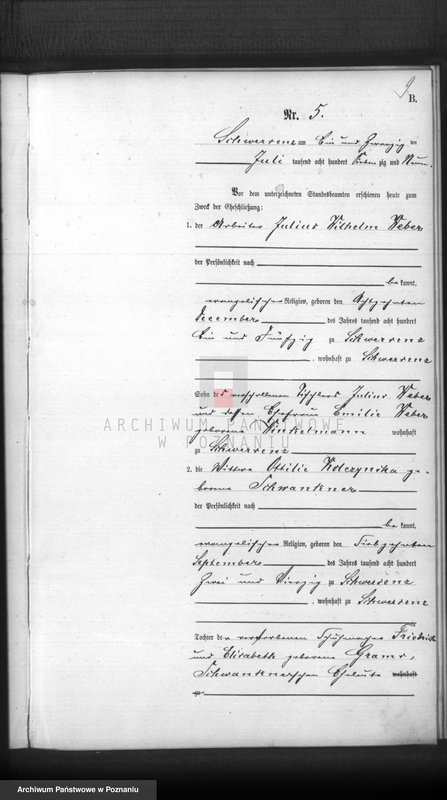 9.
B.
Nr. 5.
Schwersenz am Ein und Zwanzig ten
Juli tausend acht hundert Sieben zig und Neun.
Vor dem unterzeichneten Standesbeamten erschienen heute zum
Zweck der Eheschließung:
1. der Arbeiter Julius Wilhelm Weber
der Persönlichkeit nach
be kannt,
evangelischer Religion, geboren den Achtzehnten
December des Jahres tausend acht hundert
Ein und Fünfzig zu Schwersenz
, wohnhaft zu Schwersenz
Sohn des verschollenen Tischlers Julius Weber
und dessen Ehefrau Emilie Weber
geborene Winkelmann wohnhaft
zu Schwersenz
2. die Wittwe Ottilie Kolczynska ge-
borene Schwankner
der Persönlichkeit nach
be kannt,
evangelischer Religion, geboren den Siebzehnten
September des Jahres tausend acht hundert
Zwei und Vierzig zu Schwersenz
, wohnhaft zu Schwersenz
Tochter der verstorbenen Schuhmacher Friedrich
und Elisabeth geborene Grams,
Schwanknerschen Eheleute wohnhaft
zu
ARCHIWUM PAŃSTWOWE
W POZNANIU
Archiwum Państwowe w Poznaniu
Archiwum Państwowe w Poznaniu